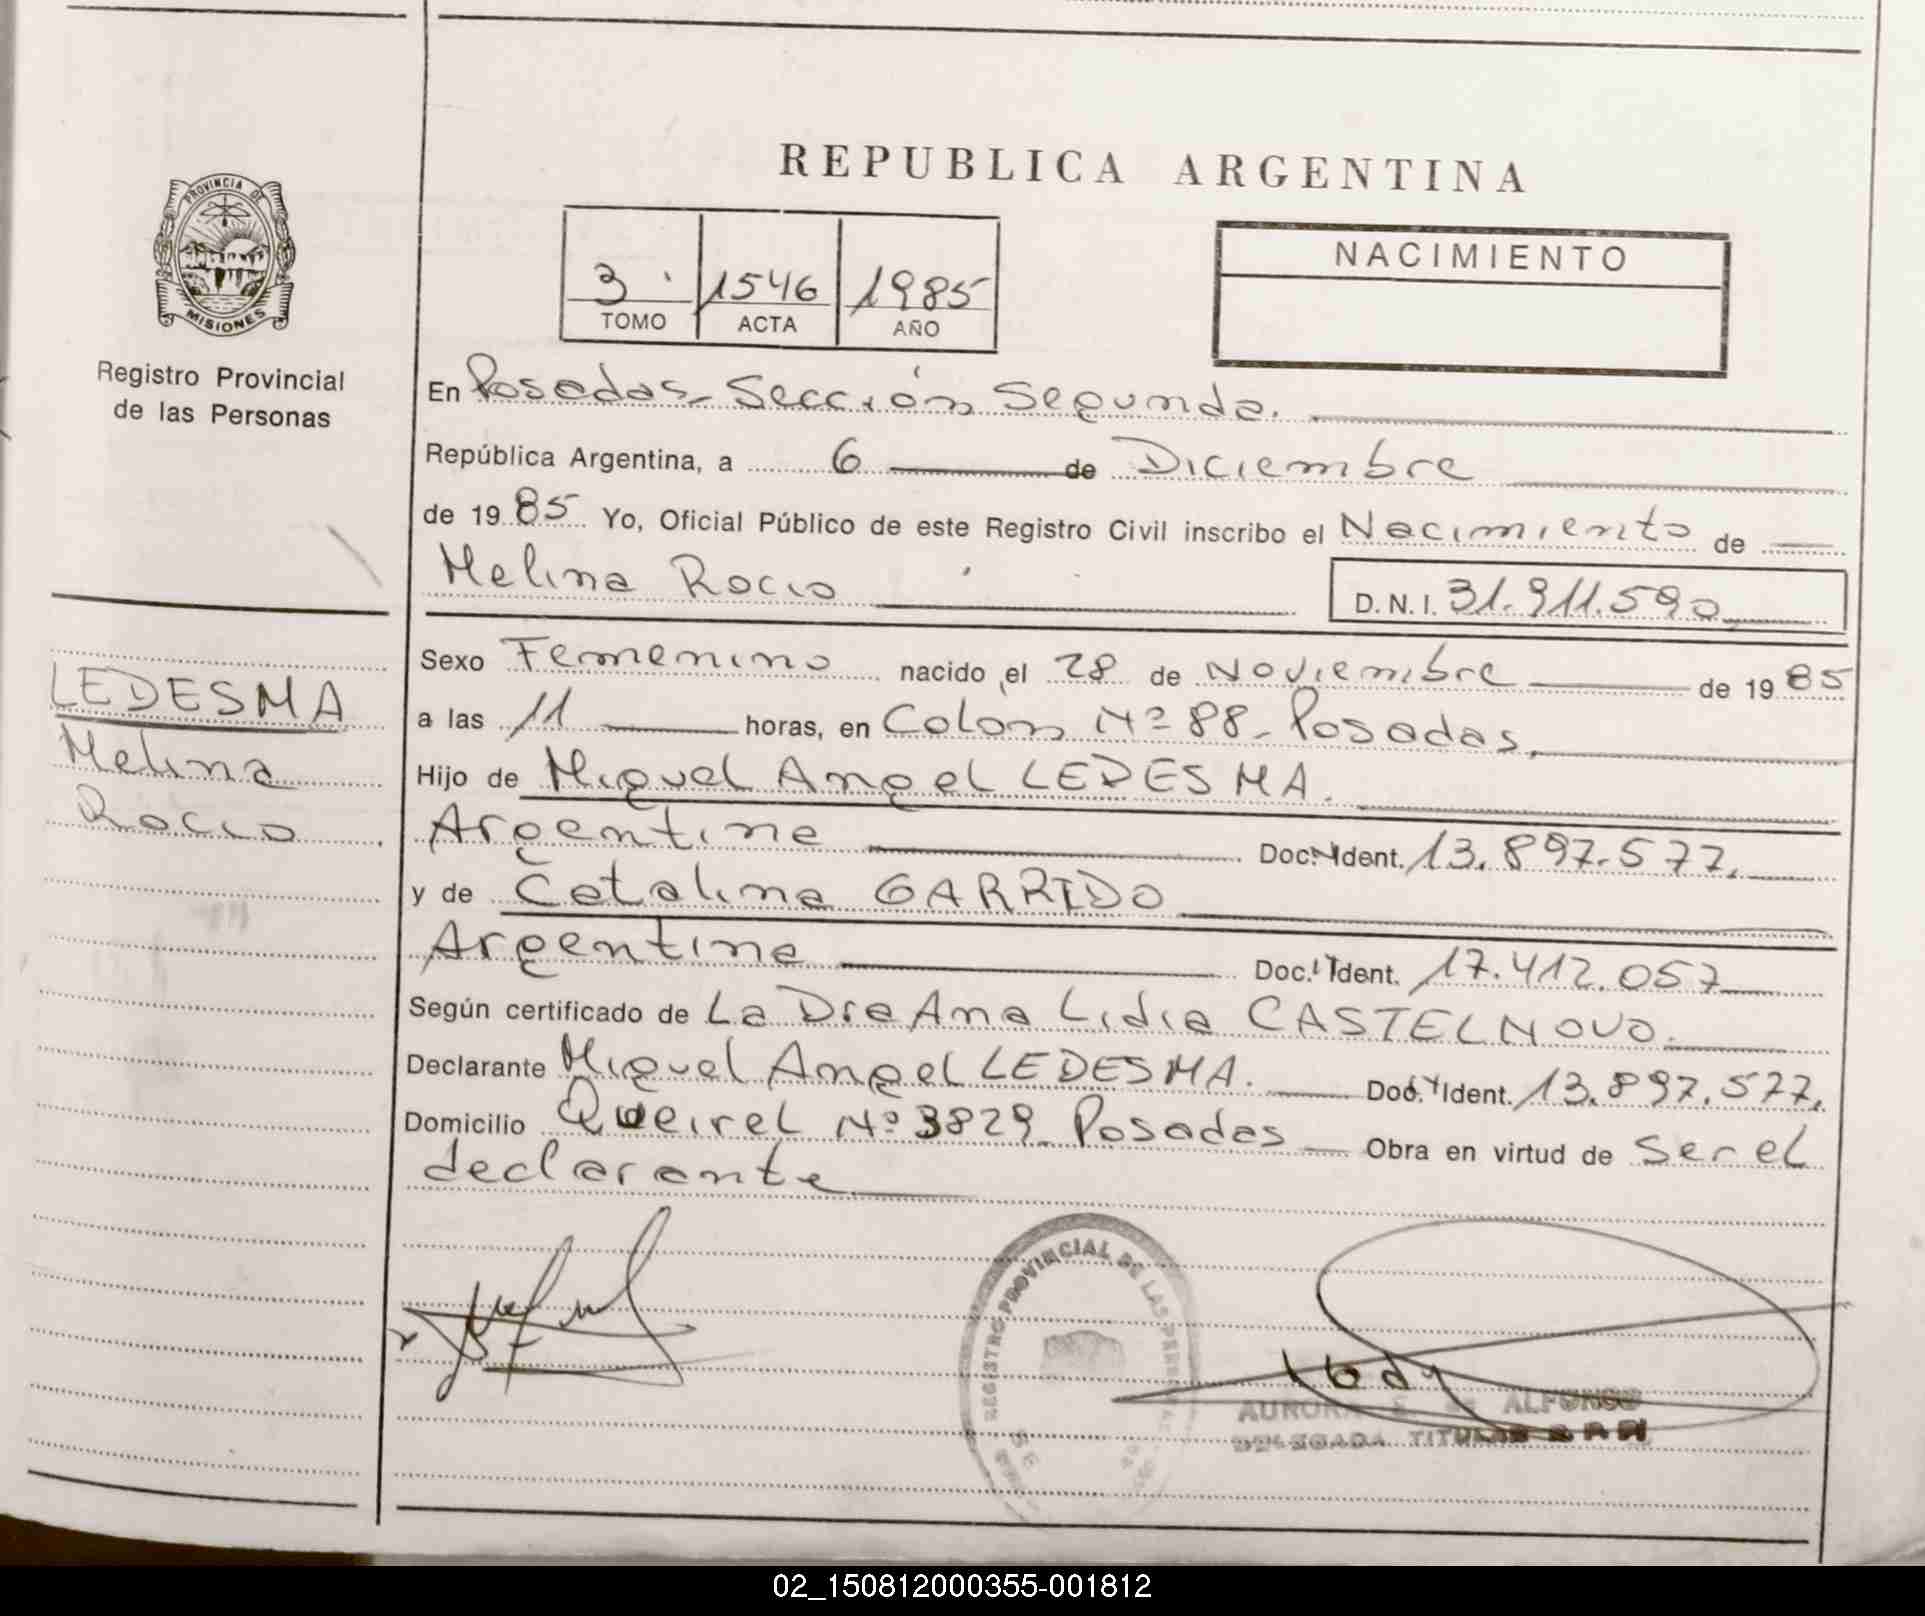 REPUBLICA ARGENTINA
PROVINCIA DE
MISIONES
Registro Provincial
de las Personas
3 1546 1985
TOMO ACTA AÑO
NACIMIENTO
En Posadas - Sección Segunda.
República Argentina, a 6 de Diciembre
de 19 85 Yo, Oficial Público de este Registro Civil inscribo el Nacimiento de
Melina Rocio D.N.I. 31.911.590
LEDESMA
Melina
Rocio
Sexo Femenino nacido el 28 de Noviembre de 19 85
a las 11 horas, en Colon Nº 88 - Posadas.
Hijo de Miguel Angel LEDESMA.
Argentina Doc. Ident. 13.897.577.
y de Catalina GARRIDO
Argentina Doc. Ident. 17.412.057
Según certificado de La Dra Ana Lidia CASTELNOVO.
Declarante Miguel Angel LEDESMA. Doc. Ident. 13.897.577.
Domicilio Queirel Nº 3829 Posadas Obra en virtud de Ser el
declarante
REGISTRO PROVINCIAL DE LAS PERSONAS
AURORA ALFONSO
DELEGADA TITULAR
02_150812000355-001812